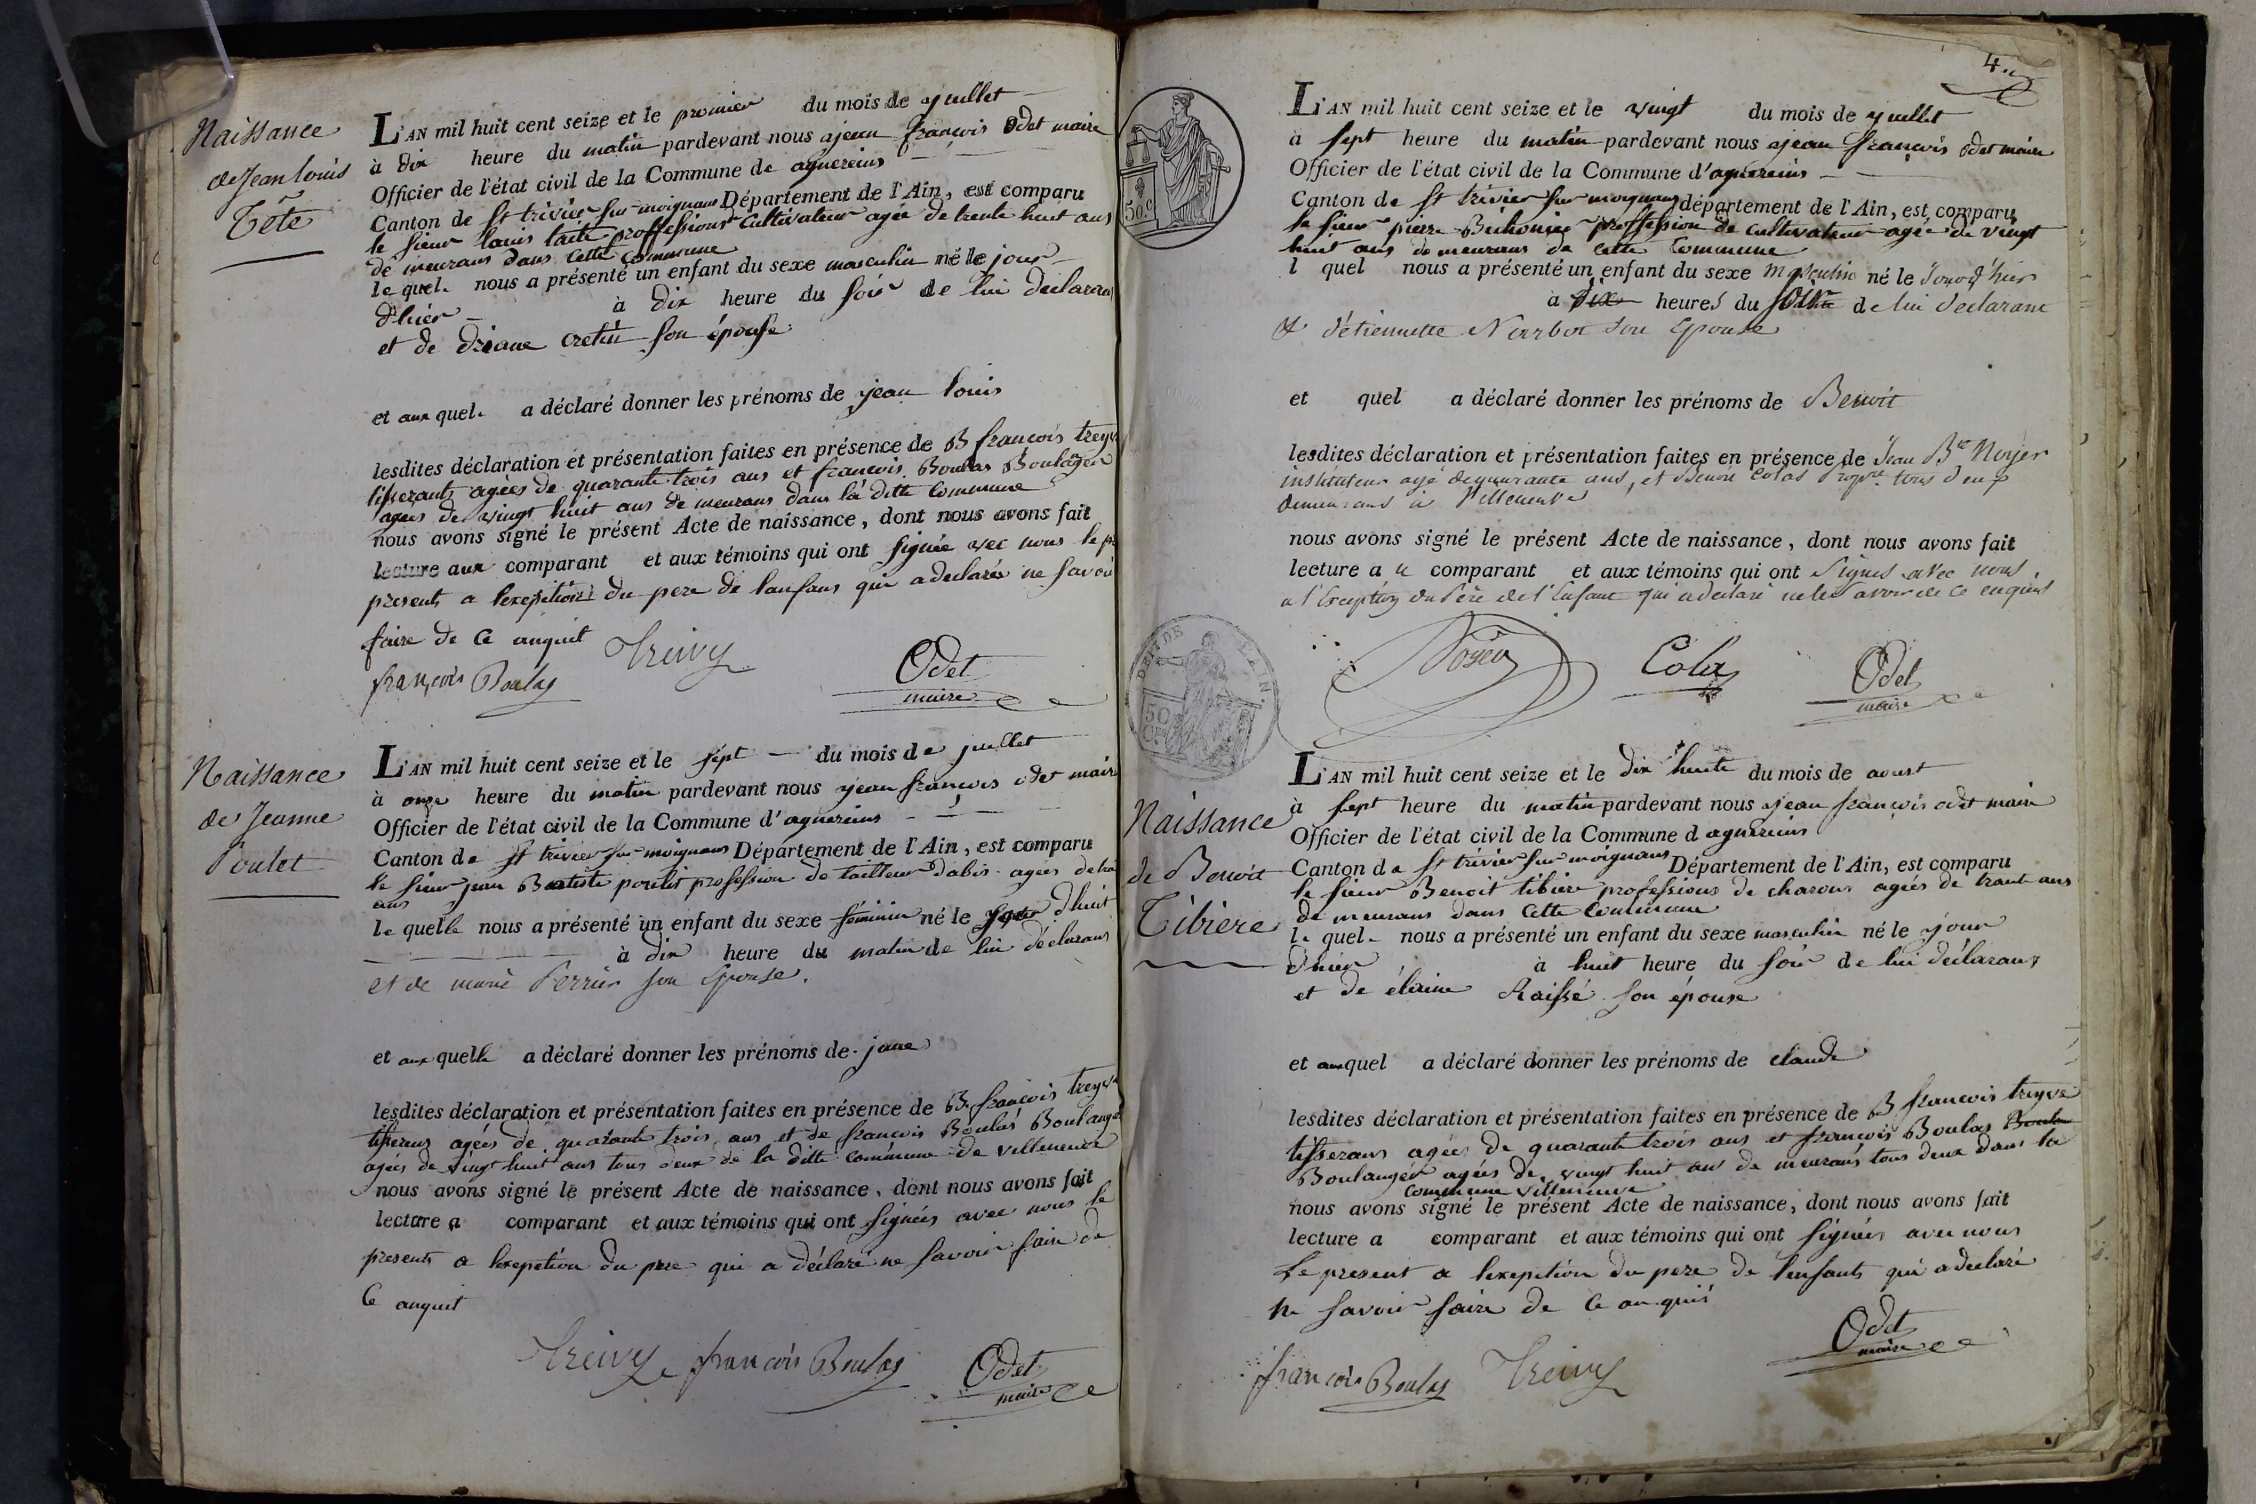 Naissance
de Jean louis
Tête
L'AN mil huit cent seize et le premier du mois de juillet
à dix heure du matin pardevant nous ajean françois Odet maire
Officier de l'état civil de la Commune de aguereins
Canton de st trivier sur moignans Département de l'Ain, est comparu
le sieur louis taite proffession Cultivateur agée de trente huit ans
de meurans dans cette Commune
le quel. nous a présenté un enfant du sexe masculin né le jour
d'hiér à dix heure du soir de lui declarant
et de driane cretin son épouse
et aux quel. a déclaré donner les prénoms de jean louis
lesdites déclaration et présentation faites en présence de B françois treyve
tisserants agées de quarante trois ans et francois Boulas Boulanger
agées de vingt huit ans de meurans dans la ditte Commune
nous avons signé le présent Acte de naissance, dont nous avons fait
lecture aux comparant et aux témoins qui ont signée avec nous le
presents a lexepition du pere de lanfans qui a declarés ne savoir
faire de Ce anquit
françois Boulas Treivy Odet
maire
Naissance
de Jeanne
Poulet
L'AN mil huit cent seize et le sept du mois de juillet
à onze heure du matin pardevant nous ajean françois odet maire
Officier de l'état civil de la Commune d'aguereins
Canton de st trivier sur moignans Département de l'Ain, est comparu
le sieur jean Batiste poulet profession de tailleur d'abis agées de
ans
le quelle nous a présenté un enfant du sexe féminin né le d'huit
à dix heure du matin de lui déclarans
et de marie Perrier son Epouse.
et aux quelle a déclaré donner les prénoms de jane
lesdites déclaration et présentation faites en présence de B françois treyve
tisserans agées de quarante trois ans et de francois Boulas Boulanger
agées de vingt huit ans tous deux de la ditte commune de villeneuve
nous avons signé le présent Acte de naissance, dont nous avons fait
lecture a comparant et aux témoins qui ont signées avec nous le
presents a lexepetion du pere qui a déclaré ne savoir faire de
Ce anquit
Treivy françois Boulas Odet
maire
4
L'AN mil huit cent seize et le vingt du mois de juillet
à sept heure du matin pardevant nous ajean françois odet maire
Officier de l'état civil de la Commune d'aguereins
Canton de st trivier sur moignans département de l'Ain, est comparu
le sieur pierre proffession de cultivateur agée de vingt
huit ans de meurans de cette Commune
l quel nous a présenté un enfant du sexe Masculin né le Jour d'hier
à dix heures du soir de lui declarant
et d'étiennette Narbot son Epouse
et quel a déclaré donner les prénoms de Benoit
lesdites déclaration et présentation faites en présence de Jean Bte Noyer
instituteur agé de quarante ans, et Benoit Colas Propre. tous deux
demeurans à Villeneuve
nous avons signé le présent Acte de naissance, dont nous avons fait
lecture a u comparant et aux témoins qui ont Signés avec nous,
a l'Exception du Père de l'Enfant qui a declaré ne le savoir de ce enquis
Noyer Colas Odet
maire
50 c.
DEP. DE L'AIN.
50
C.
Naissance
de Benoit
Tibiere
L'AN mil huit cent seize et le dix huite du mois de aoust
à sept heure du matin pardevant nous ajean françois odet maire
Officier de l'état civil de la Commune d aguereins
Canton de st trivier sur moignans Département de l'Ain, est comparu
le sieur Benoit tibiere professions de charons agées de trante ans
de meurans dans Cette Commune
le quel. nous a présenté un enfant du sexe masculin né le jour
d'hiér à huit heure du soir de lui déclarans
et de élaine Raissé son épouse
et auxquel a déclaré donner les prénoms de claude
lesdites déclaration et présentation faites en présence de B francois treyve
tisserans agées de quarante trois ans et françois Boulas
Boulangér agées de vingt huit ans de meurans tous deux dans la
Commune villeneuve
nous avons signé le présent Acte de naissance, dont nous avons fait
lecture a comparant et aux témoins qui ont signées avec nous
Le present a lexepition du pere de l'enfants qui a declaré
ne savoir faire de Ce an quis
françois Boulas Treivy Odet
maire